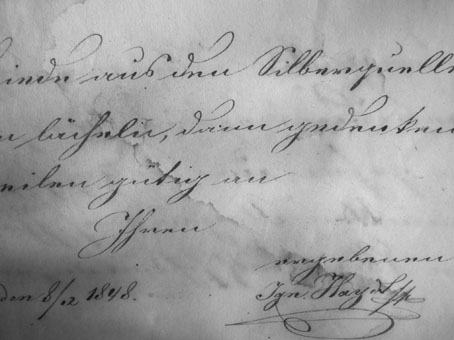 iede aus den Silberquelle
n lächeln, dann gedenken
eilen gütig an
Ihren
ergebenen
den 8/12 1848. Ign. Haydt